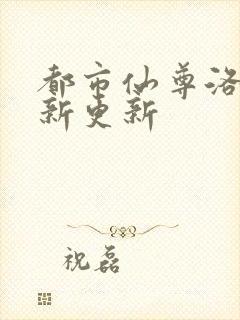 都市仙尊洛
新更新
祝磊